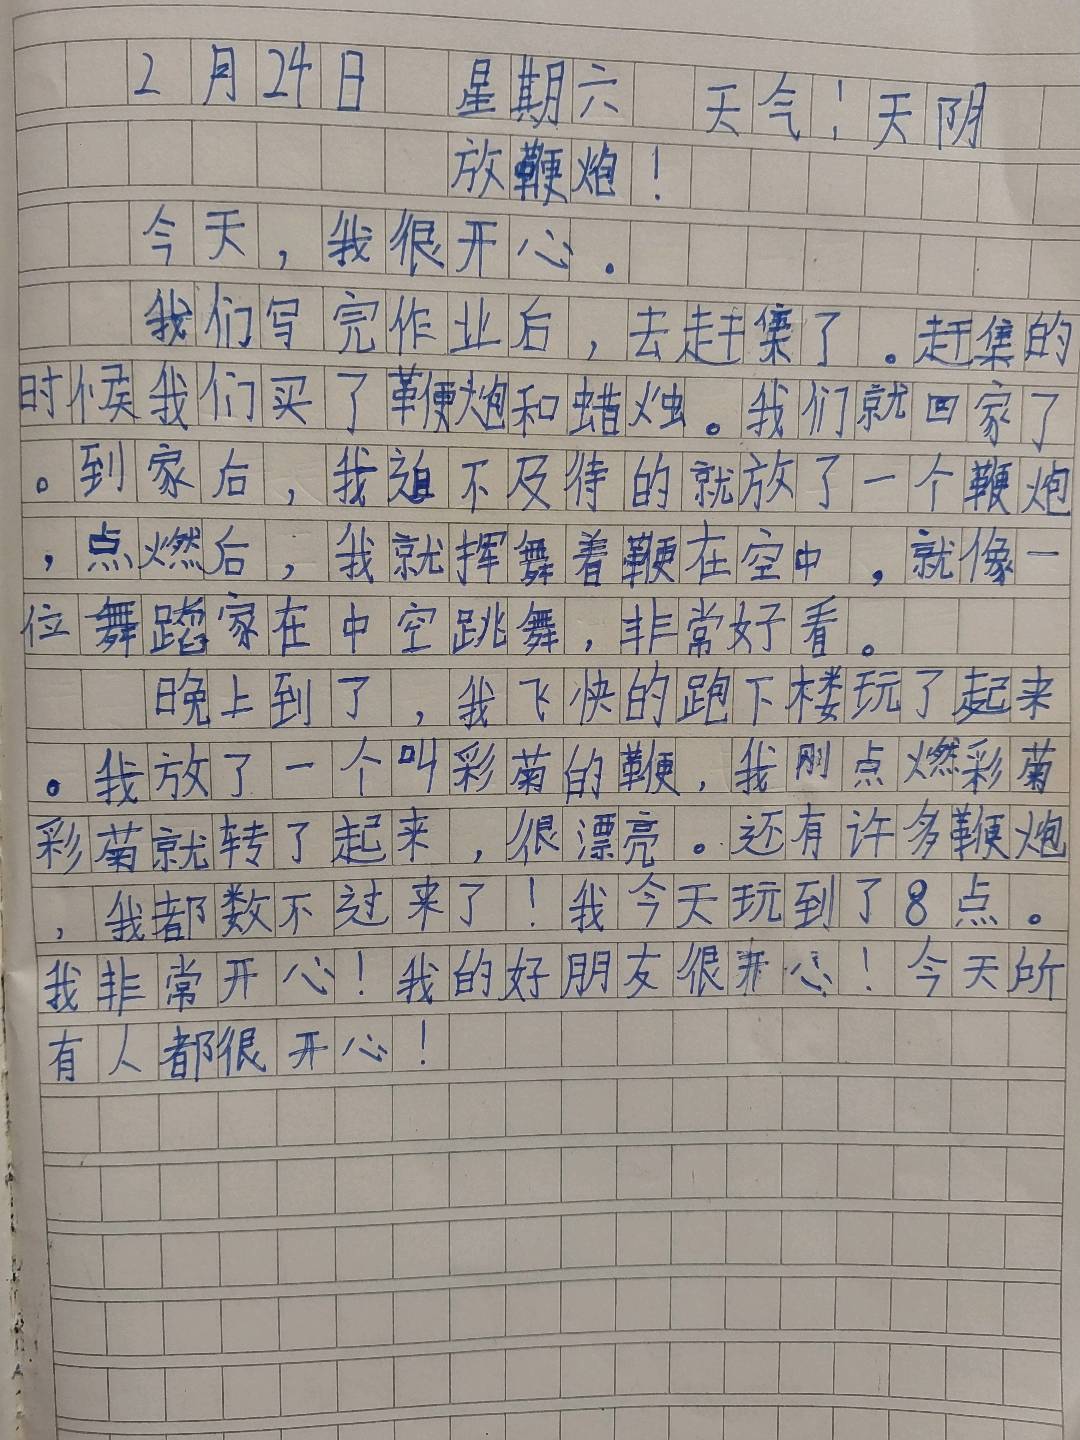 2月24日 星期六 天气:天阴
放鞭炮!
今天,我很开心。
我们写完作业后,去赶集了。赶集的
时候我们买了鞭炮和蜡烛。我们就回家了
。到家后,我迫不及待的就放了一个鞭炮
,点燃后,我就挥舞着鞭在空中,就像一
位舞蹈家在中空跳舞,非常好看。
晚上到了,我飞快的跑下楼玩了起来
。我放了一个叫彩菊的鞭,我刚点燃彩菊
彩菊就转了起来,很漂亮。还有许多鞭炮
,我都数不过来了!我今天玩到了8点。
我非常开心!我的好朋友很开心!今天所
有人都很开心!